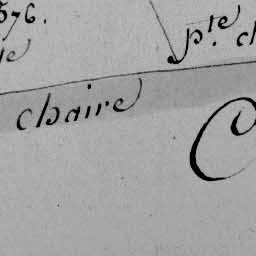 576.
pte. ch
te
chaire
C